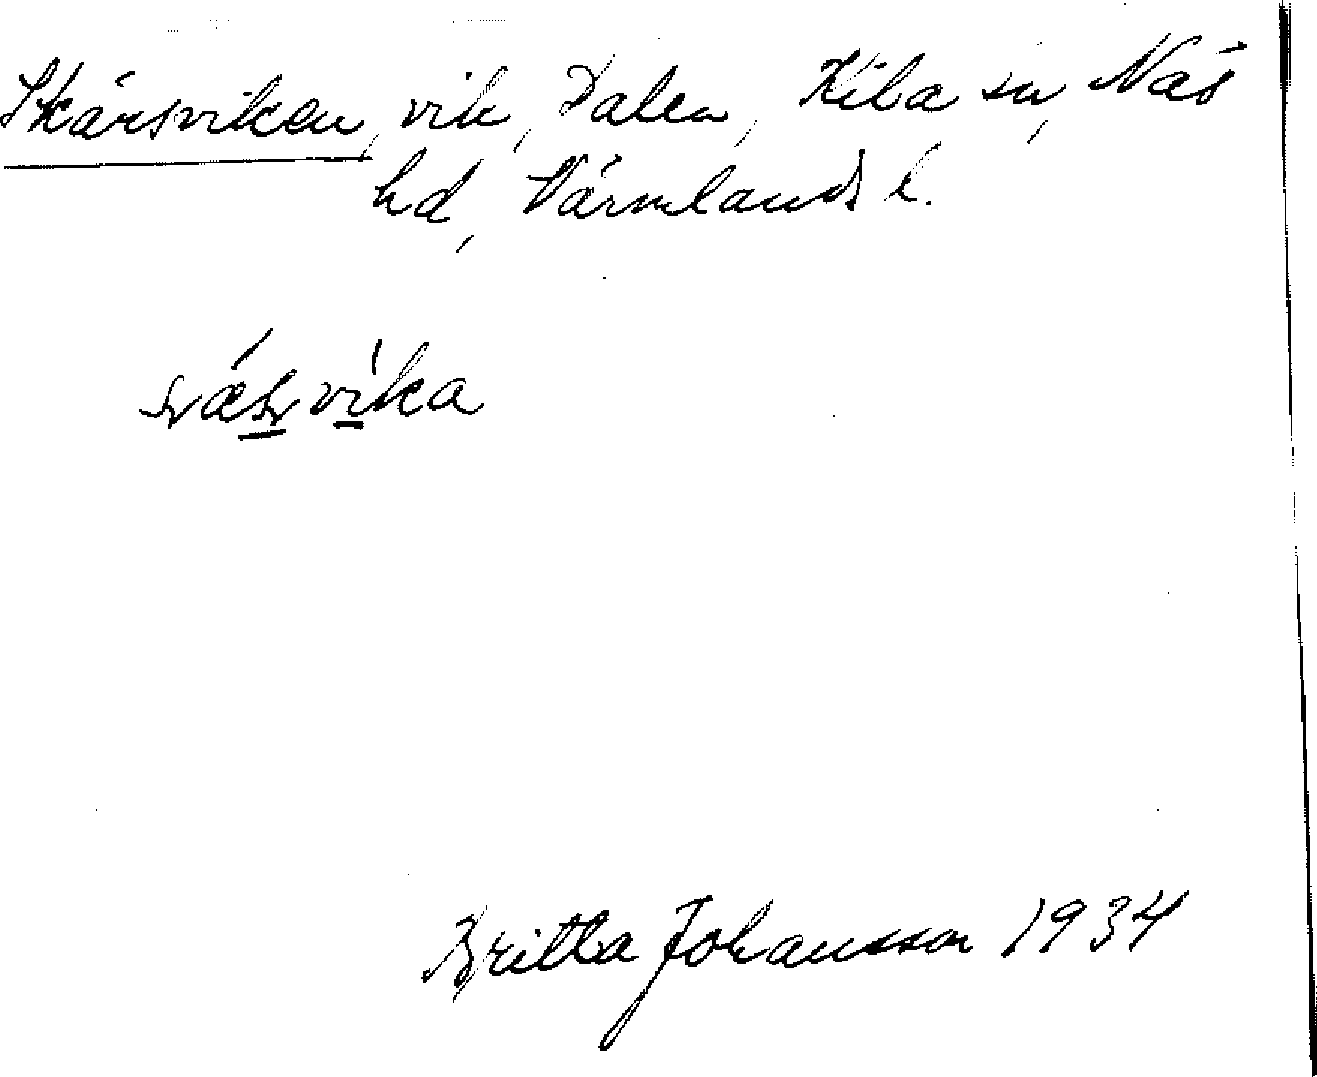 Skärsviken, vik, Dalen, Kila sn, Näs
hd, Värmlands l.
Britta Johansson 1934